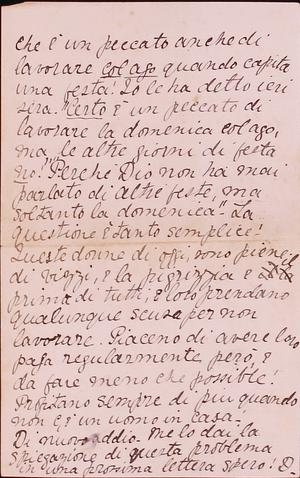 che è un peccato anche di
lavorare col ago quando capita
una festa! Io le ha detto ieri
sera. "Certo è un peccato di
lavorare la domenica col ago,
ma le altre giorni di festa
no!" Perchè Dio non ha mai
parlato di altre feste, ma
soltanto la domenica". La
questione è tanto semplice!
Queste donne di oggi, sono piene
di vizzi, e la pigrizzia è il
prima di tutti, e loro prendano
qualunque scusa per non
lavorare. Piaceno di avere loro
paga regularmente però, e
da fare meno che possible!
Profitano sempre di più quando
non c'è un uomo in casa.
Di nuovo addio. Me lo dai la
spiegazione di questa problema
in una prossima lettera spero! D.